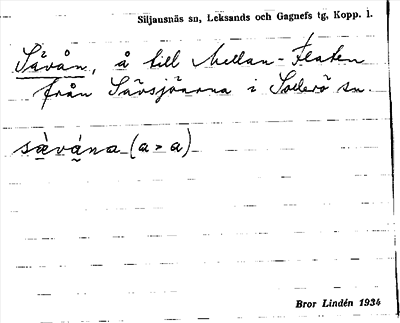 Siljansnäs sn, Leksands och Gagnefs tg, Kopp. l.
Sävån, å till Mellan-Flaten
från Sävsjöarna i Sollerö sn.
sèvána (a > a)
Bror Lindén 1934